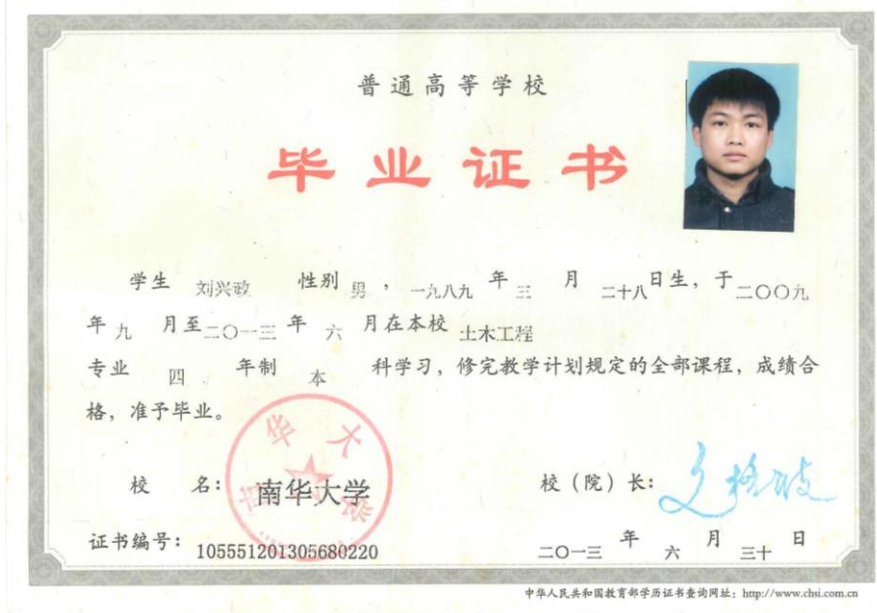 普通高等学校
毕业证书
学生 刘兴敢 性别 男 ，一九八九 年 三 月 二十八 日生，于 二〇〇九
年 九 月至 二〇一三 年 六 月在本校 土木工程
专业 四 年制 本 科学习，修完教学计划规定的全部课程，成绩合
格，准予毕业。
校 名： 南华大学 校（院）长： 文格波
南华大学
证书编号： 105551201305680220 二〇一三 年 六 月 三十 日
中华人民共和国教育部学历证书查询网址：http://www.chsi.com.cn